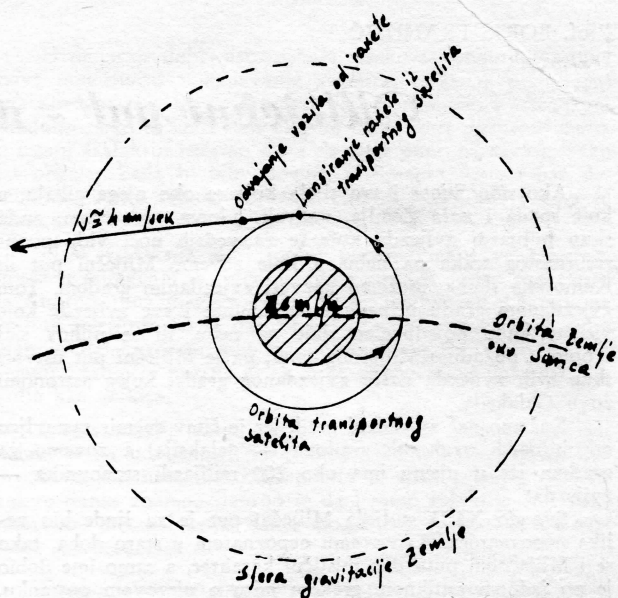 Odvajanje vozila od rakete
Lansiranje rakete iz
transportnog satelita
v ≅ 4 km/sek
Zemlja
Orbita Zemlje
oko Sunca
Orbita transportnog
satelita
Sfera gravitacije Zemlje